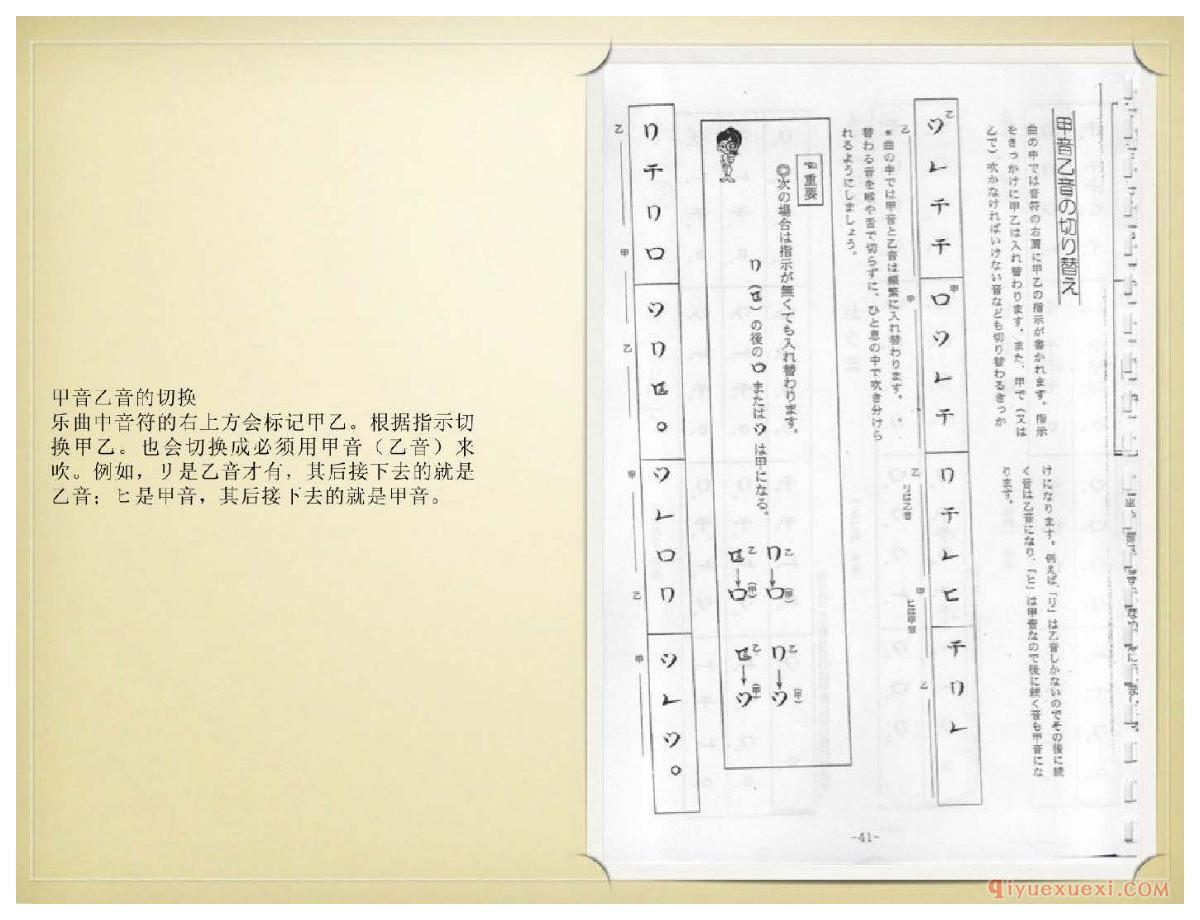 甲音乙音的切换
乐曲中音符的右上方会标记甲乙。根据指示切
换甲乙。也会切换成必须用甲音（乙音）来
吹。例如，リ是乙音才有，其后接下去的就是
乙音；ヒ是甲音，其后接下去的就是甲音。
甲音乙音の切り替え
曲の中では音符の右肩に甲乙の指示が書かれます。指示
をきっかけに甲乙は入れ替わります。また、甲で（又は
乙で）吹かなければいけない音なども切り替わるきっか
けになります。例えば、「リ」は乙音しかないのでその後に続
く音は乙音になり、「ヒ」は甲音なので後に続く音も甲音にな
ります。
ツレチチ
ロツレチ
リチレヒ
チリレ
リは乙音
ヒは甲音
*曲の中では甲音と乙音は頻繁に入れ替わります。
替わる音を喉や舌で切らずに、ひと息の中で吹き分けら
れるようにしましょう。
重要
◎次の場合は指示が無くても入れ替わります。
の後のロまたはツは甲になる。
リチリロ
ツレロリ
ツレツ。
-41-
qiyuexuexi.com